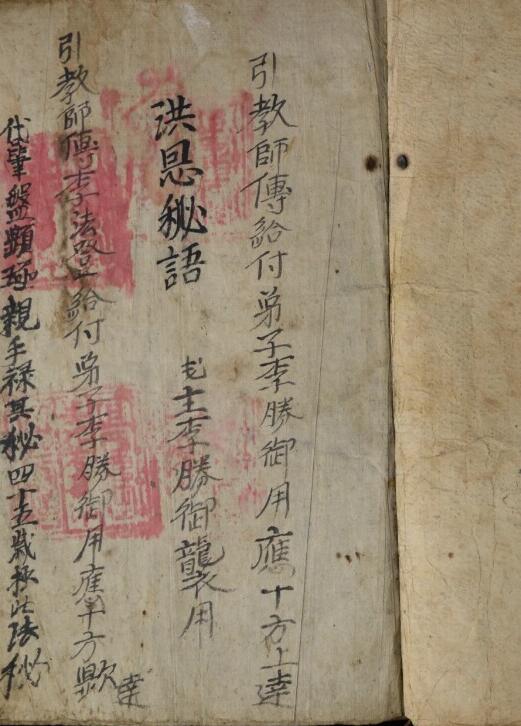 引教師傳給付弟子李勝御用應十方上達
洪恩秘語
主李勝御襲用
引教師傳李法登給付弟子李勝御用應十方歟達
代筆盤顯 親手祿其秘四十五歲抄此法秘